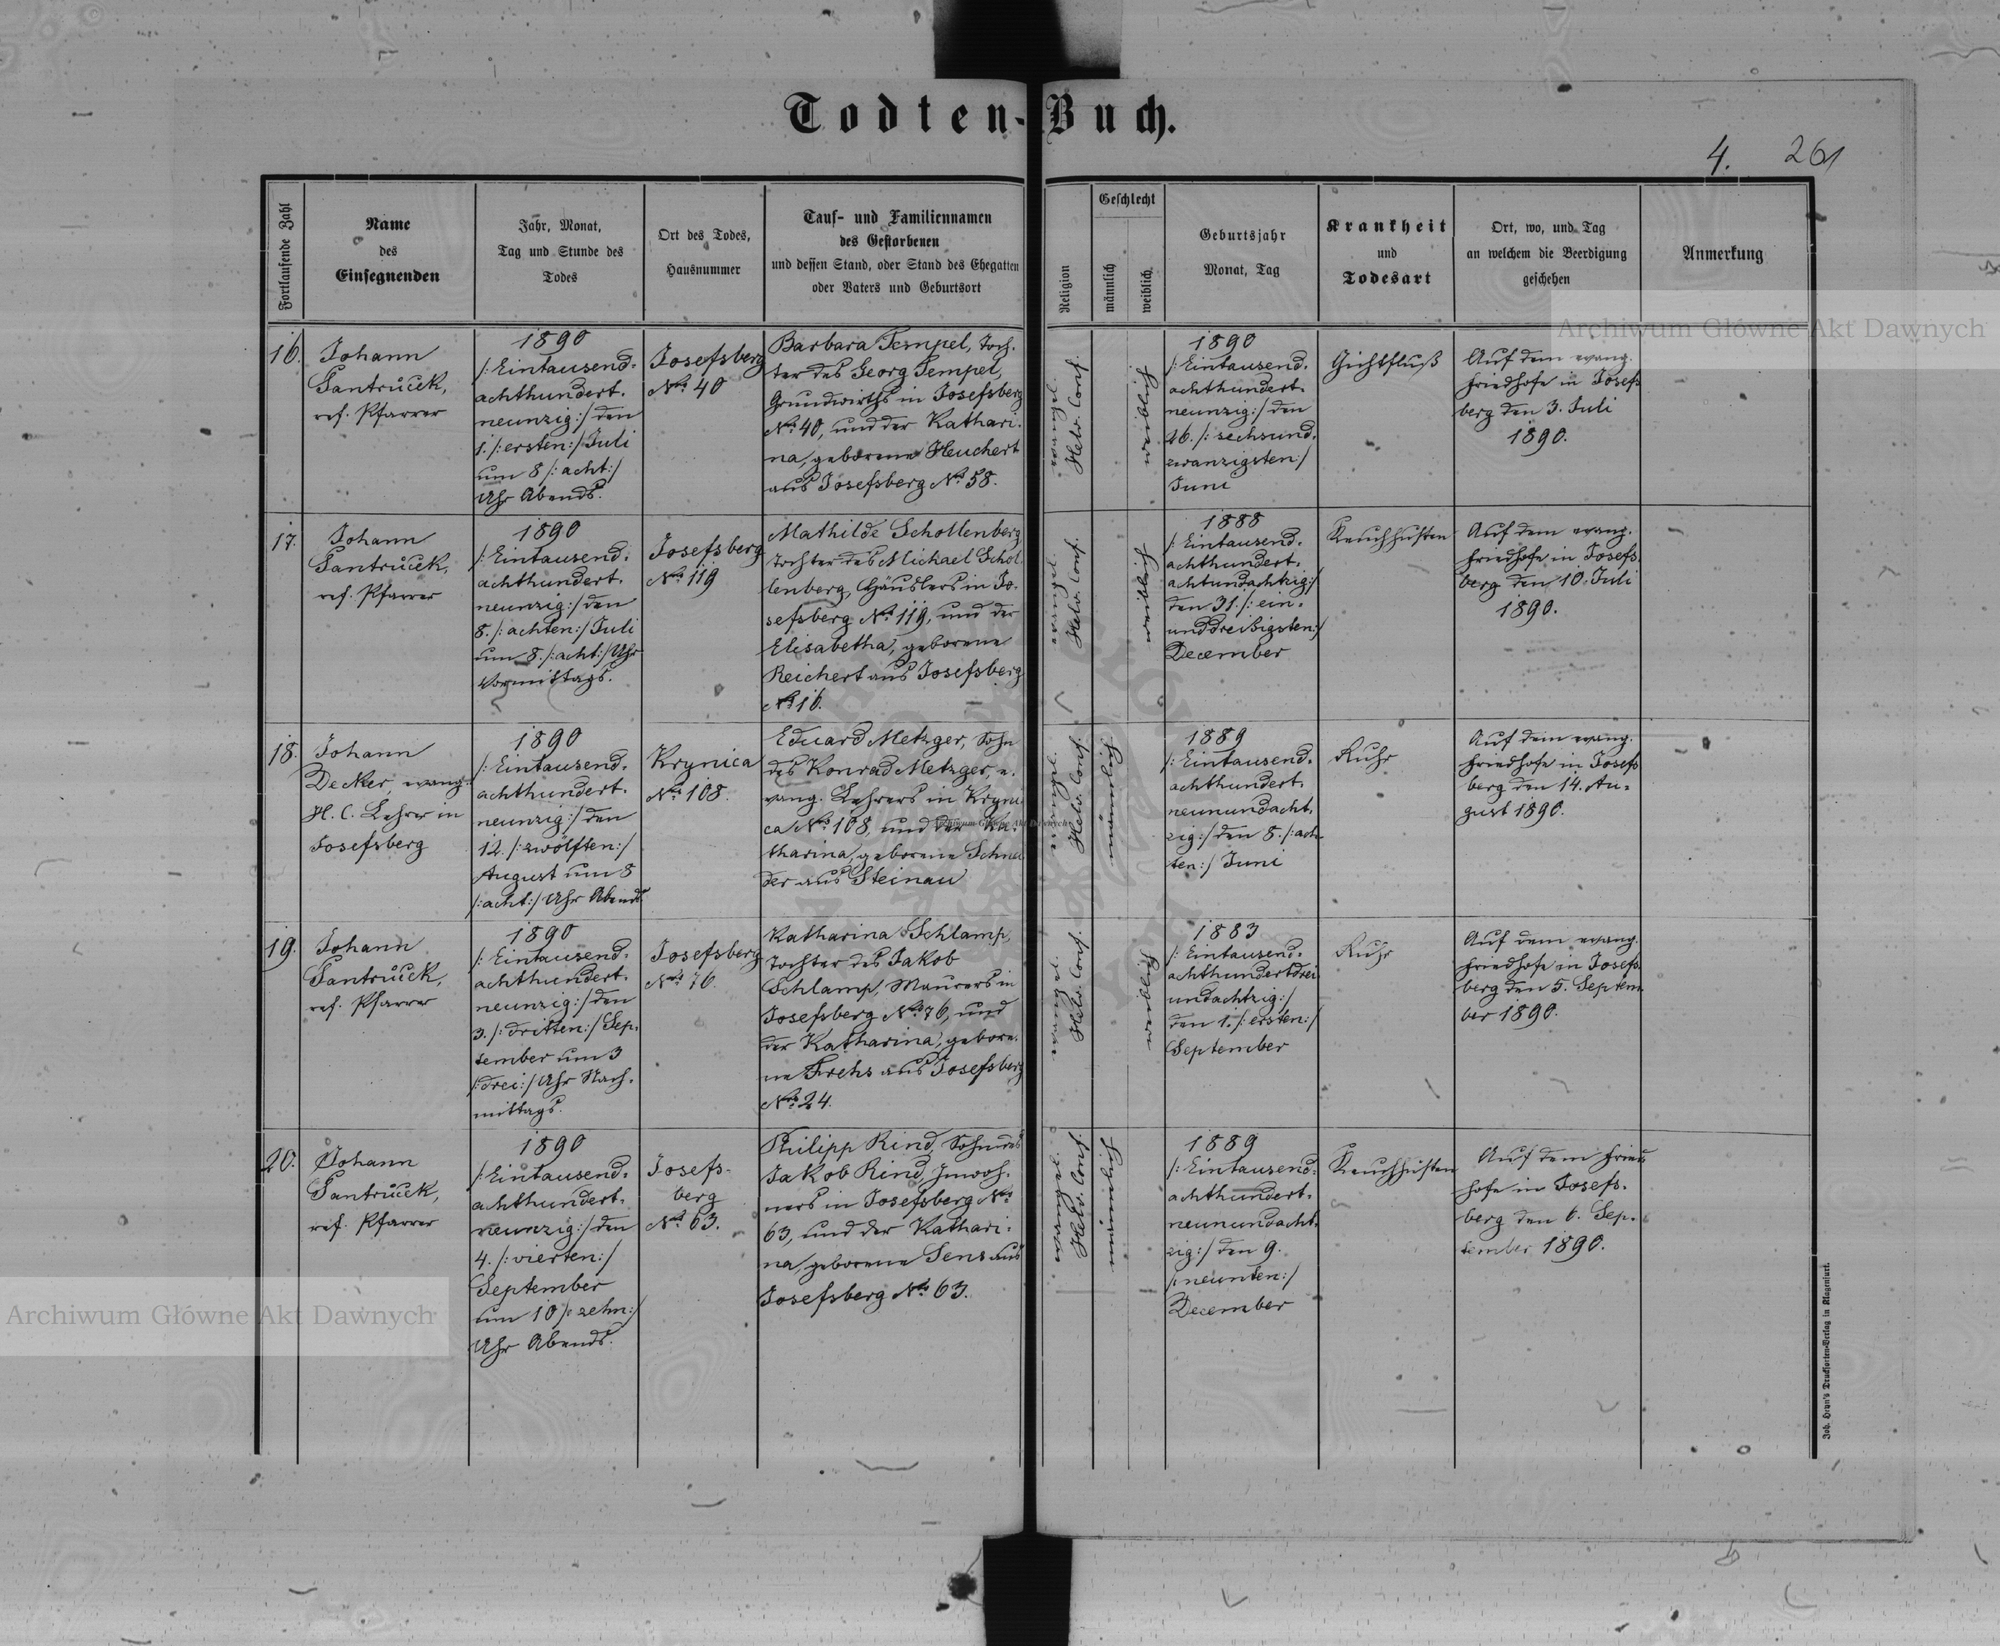 Todten-Buch.
4. 261
Fortlaufende Zahl
Name
des
Einsegnenden
Jahr, Monat,
Tag und Stunde des
Todes
Ort des Todes,
Hausnummer
Tauf- und Familiennamen
des Gestorbenen
und dessen Stand, oder Stand des Ehegatten
oder Vaters und Geburtsort
Religion
Geschlecht
männlich
weiblich
Geburtsjahr
Monat, Tag
Krankheit
und
Todesart
Ort, wo, und Tag
an welchem die Beerdigung
geschehen
Anmerkung
16.
Johann
Jantrůček,
ref. Pfarrer
1890
/:Eintausend-
achthundert-
neunzig:/ den
1. /:ersten:/ Juli
um 8 /:acht:/
Uhr Abends.
Josefsberg
No 40
Barbara Tempel, Toch-
ter des Georg Tempel,
Grundwirths in Josefsberg
No 40, und der Kathari-
na, geborene Heuchert
aus Josefsberg No 58.
evangel.
Helv. Conf.
weiblich
1890
/:Eintausend-
achthundert-
neunzig:/ den
26. /:sechsund-
zwanzigsten:/
Juni
Gichtfluß
Auf dem evang.
Friedhofe in Josefs
berg den 3. Juli
1890.
17.
Johann
Jantrůček,
ref. Pfarrer
1890
/:Eintausend-
achthundert-
neunzig:/ den
8. /:achten:/ Juli
um 8. /:acht:/ Uhr
Vormittags.
Josefsberg
No 119
Mathilde Schollenberg
Tochter des Michael Schol-
lenberg, Häuslers in Jo-
sefsberg No 119, und der
Elisabetha, geborene
Reichert aus Josefsberg
No 16.
evangel.
Helv. Conf.
weiblich
1888
/:Eintausend-
achthundert-
achtundachtzig:/
den 31. /:ein-
unddreißigsten:/
December
Keuchhusten
Auf dem evang.
Friedhofe in Josefs-
berg den 10. Juli
1890.
18.
Johann
Decker, evang.
H. C. Lehrer in
Josefsberg
1890
/:Eintausend-
achthundert-
neunzig:/ den
12. /:zwölften:/
August um 8
/:acht:/ Uhr Abends
Krynica
No 108.
Eduard Metzger, Sohn
des Konrad Metzger, e-
vang. Lehrers in Kryni
ca No 108, und der Ka-
tharina, geborene Schnei
der aus Steinau
evangel.
Helv. Conf.
männlich
1889
/:Eintausend-
achthundert-
neunundacht-
zig:/ den 8. /:ach-
ten:/ Juni
Ruhr
Auf dem evang.
Friedhofe in Josefs
berg den 14. Au-
gust 1890.
19.
Johann
Jantrůček,
ref. Pfarrer
1890
/:Eintausend-
achthundert-
neunzig:/ den
3. /:dritten:/ Sep-
tember um 3
/:drei:/ Uhr Nach-
mittags.
Josefsberg
No 76.
Katharina Schlamp,
Tochter des Jakob
Schlamp, Maurers in
Josefsberg No 76, und
der Katharina, gebore-
ne Frehs aus Josefsberg
No 24.
evangel.
Helv. Conf.
weiblich
1883
/:Eintausend-
achthundertdrei
undachtzig:/
den 1. /:ersten:/
September
Ruhr
Auf dem evang.
Friedhofe in Josefs-
berg den 5. Septem-
ber 1890.
20.
Johann
Jantrůček,
ref. Pfarrer
1890
/:Eintausend-
achthundert-
neunzig:/ den
4. /:vierten:/
September
um 10 /:zehn:/
Uhr Abends.
Josefs-
berg
No 63.
Philipp Rind, Sohn des
Jakob Rind, Inwoh-
ners in Josefsberg No
63, und der Kathari-
na, geborene Sens aus
Josefsberg No 63.
evangel.
Helv. Conf.
männlich
1889
/:Eintausend-
achthundert-
neunundacht-
zig:/ den 9.
/:neunten:/
December
Keuchhusten
Auf dem Fried
hofe in Josefs-
berg den 6. Sep-
tember 1890.
Joh. Heyn's Drucksorten-Verlag in Klagenfurt.
Archiwum Główne Akt Dawnych
Archiwum Główne Akt Dawnych
Archiwum Główne Akt Dawnych